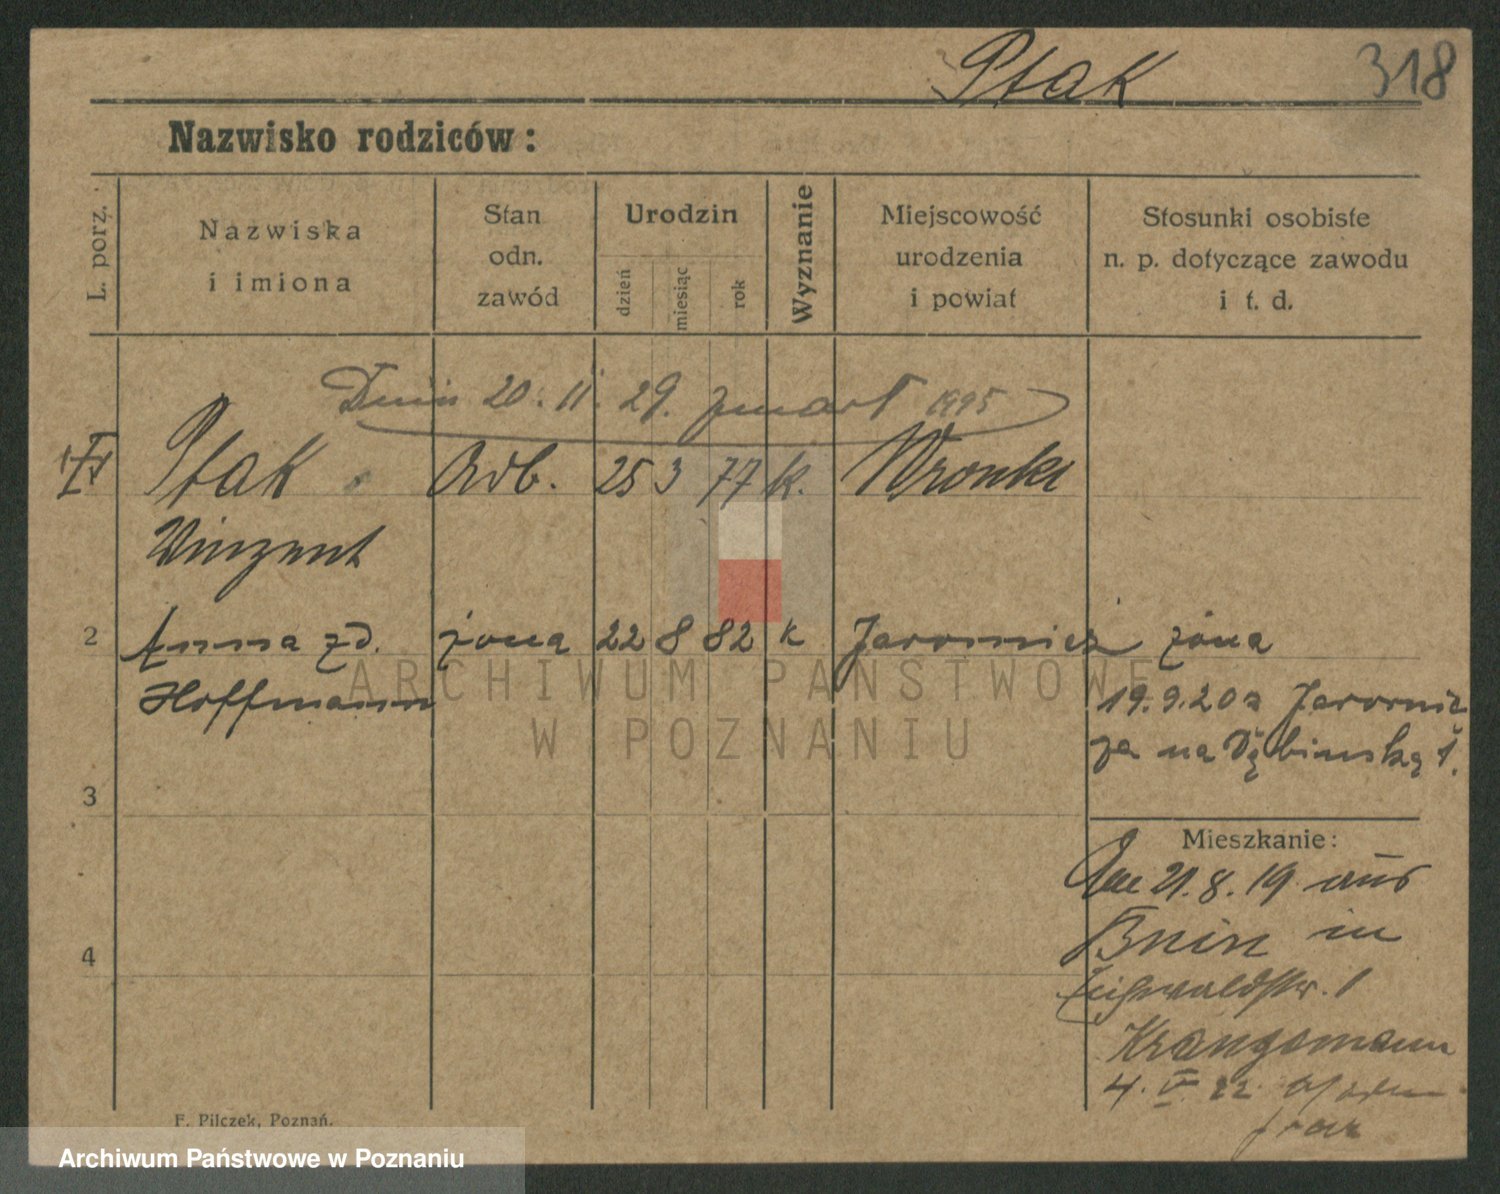 Ptak
318
Nazwisko rodziców:
L. porz.
Nazwiska
i imiona
Stan
odn.
zawód
Urodzin
dzień
miesiąc
rok
Wyznanie
Miejscowość
urodzenia
i powiat
Stosunki osobiste
n. p. dotyczące zawodu
i t. d.
Dnia 20. 11. 29. zmarł
Ptak Arb. 25 3 77 k. Wronki
Winzent
2 Anna zd. żona 22 8 82 k żona
Hoffmann
19.9.20 z
na Dębińską 1.
3
Mieszkanie:
21.8.19 aus
Bnin in
4
Eichwaldstr. 1
4. V. 22
F. Pilczek, Poznań.
ARCHIWUM PAŃSTWOWE
W POZNANIU
Archiwum Państwowe w Poznaniu